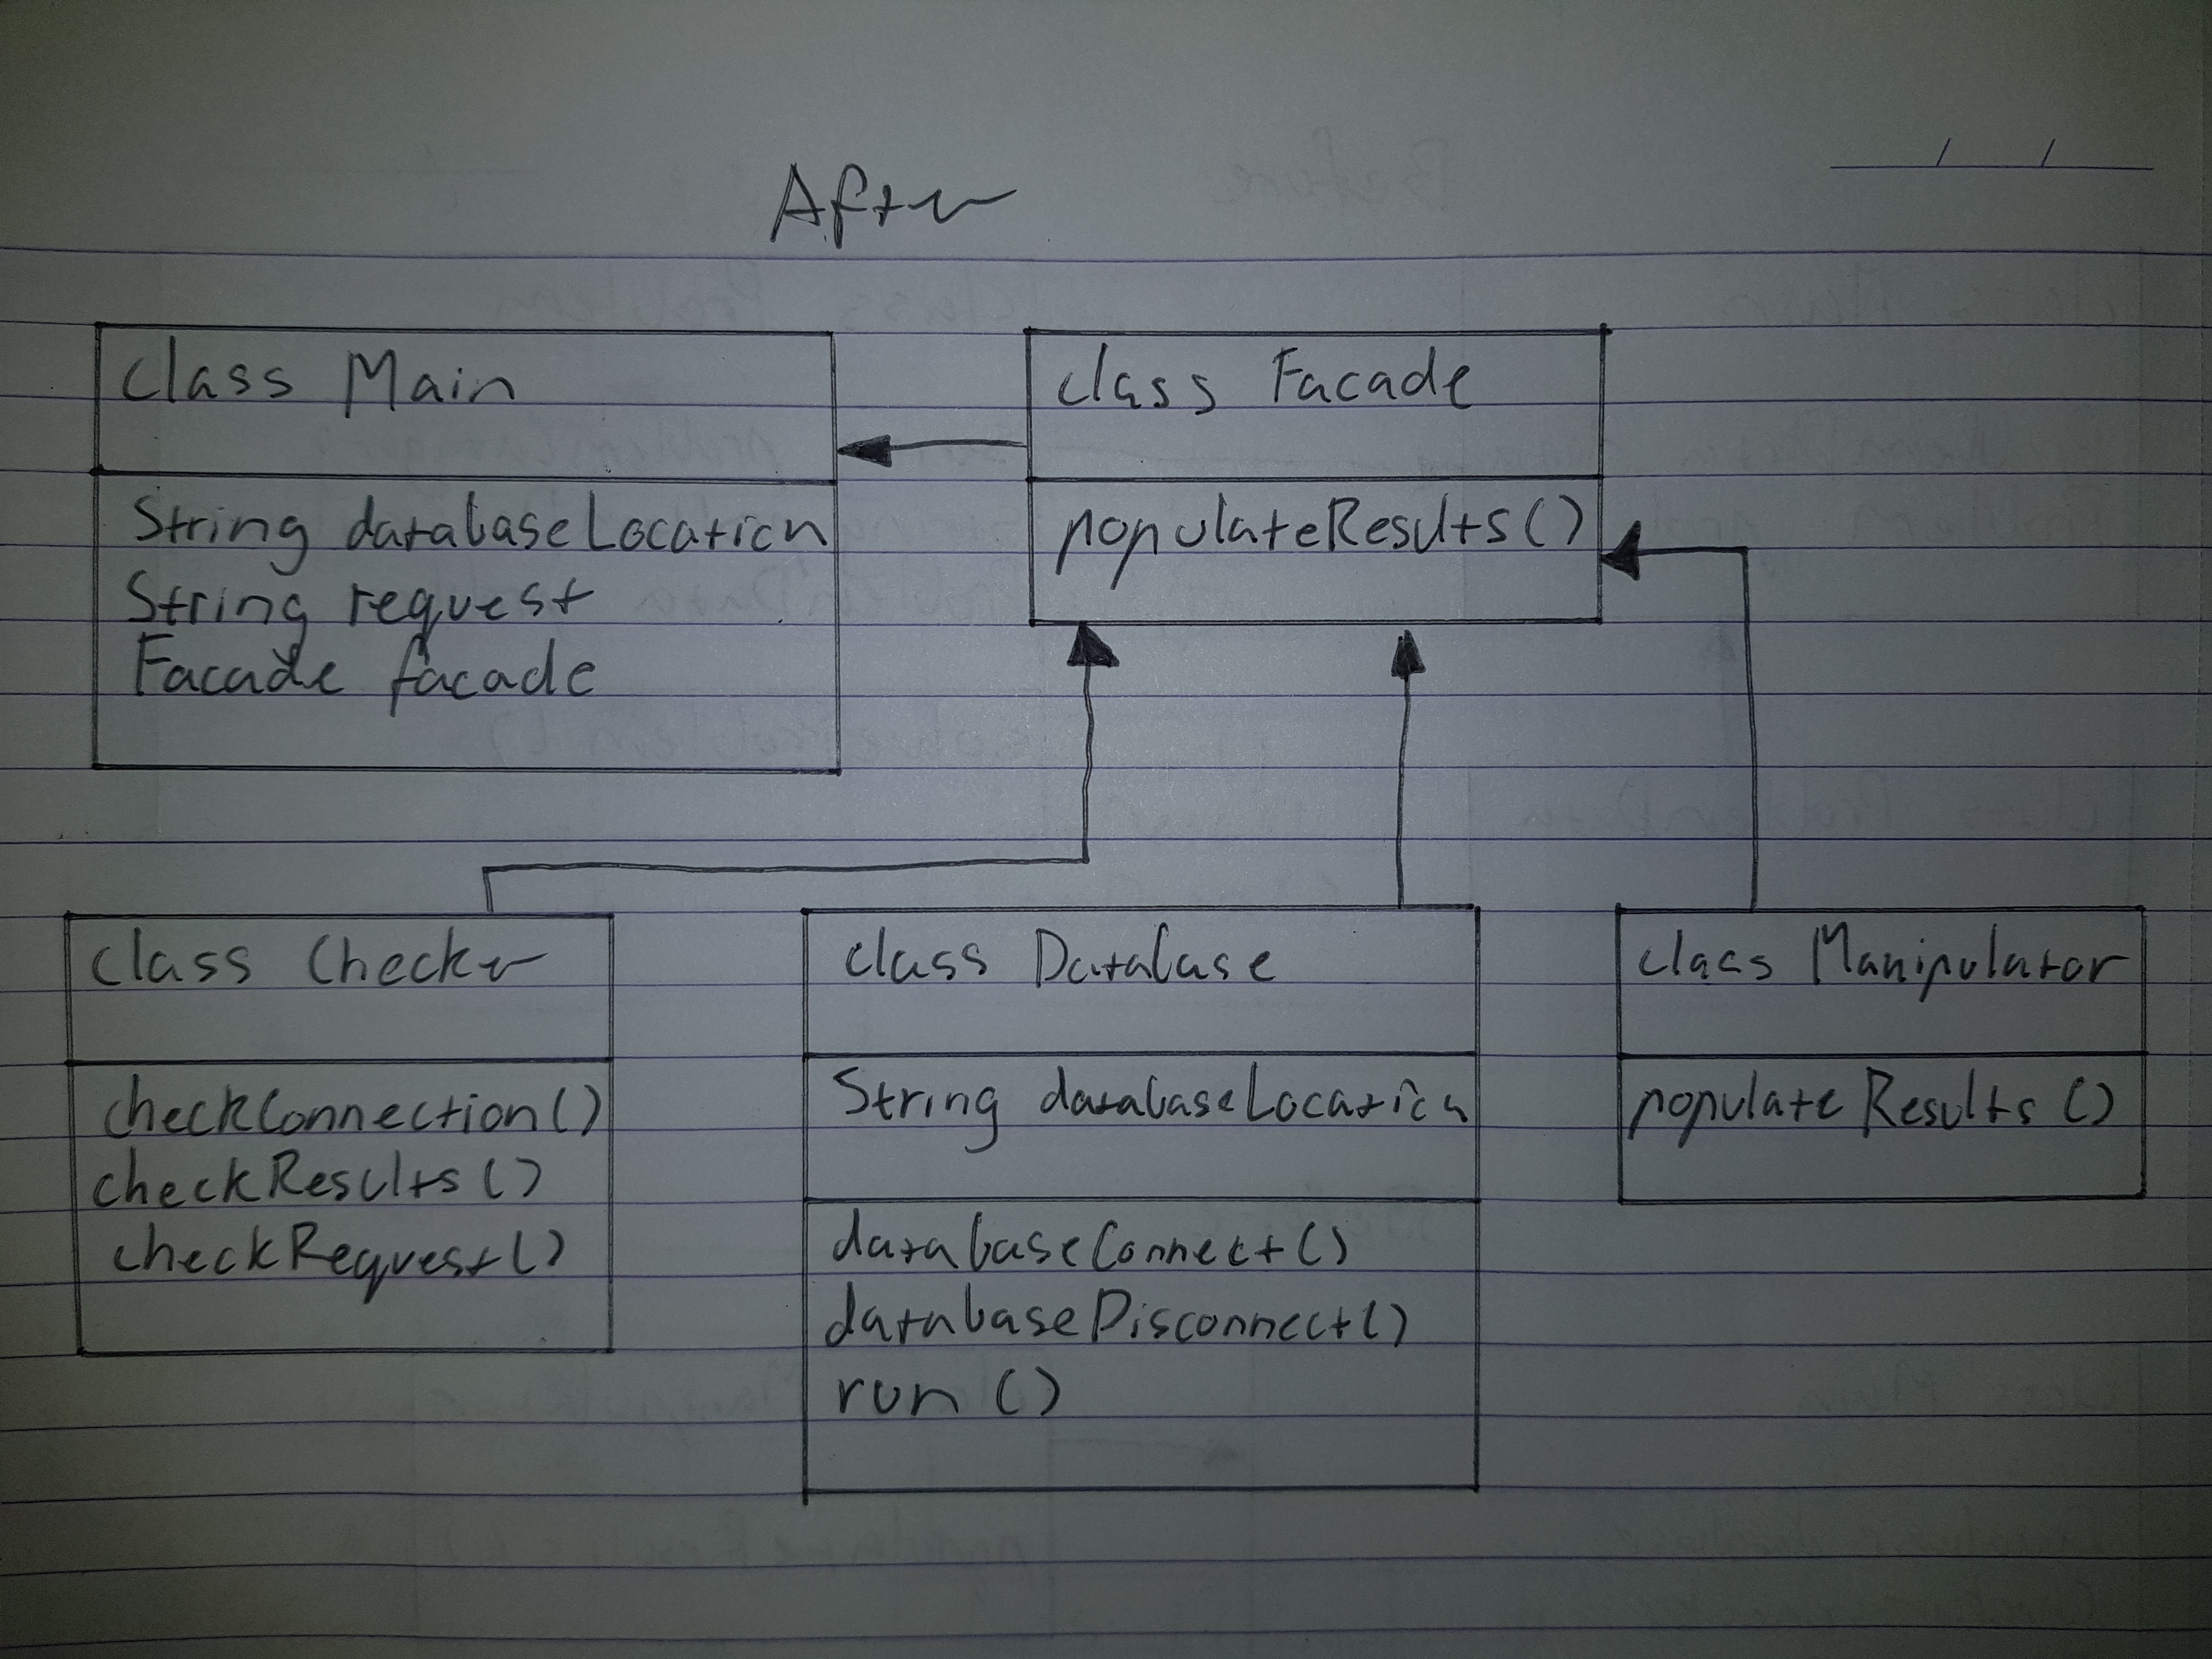 After
class Main
String databaseLocation
String request
Facade facade
class Facade
populateResults()
class Checker
checkConnection()
checkResults()
checkRequest()
class Database
String databaseLocation
databaseConnect()
databaseDisconnect()
run()
class Manipulator
populateResults()